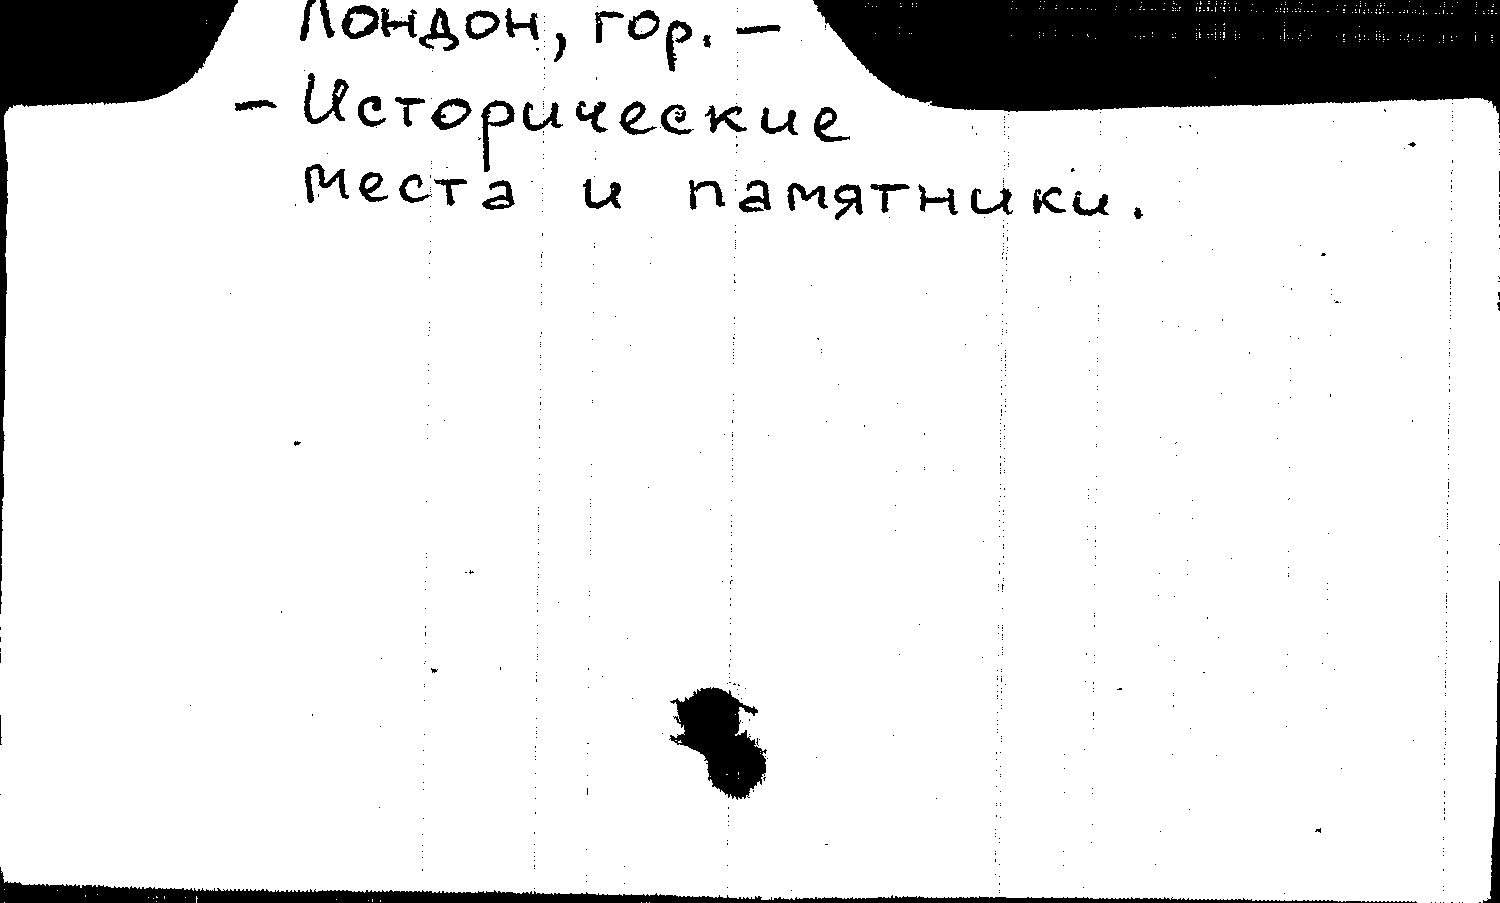 Лондон, гор. –
– Исторические
места и памятники.